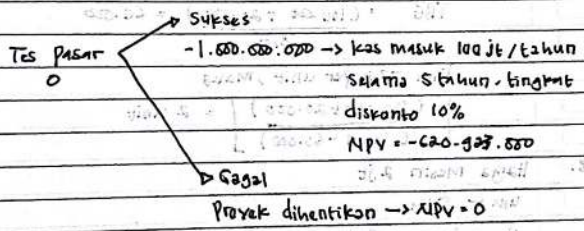 Sukses
Tes Pasar
-1.000.000.000 → kas masuk 100 jt / tahun
0
selama 5 tahun. tingkat
diskonto 10%
NPV = -620.923.000
Gagal
Proyek dihentikan → NPV = 0